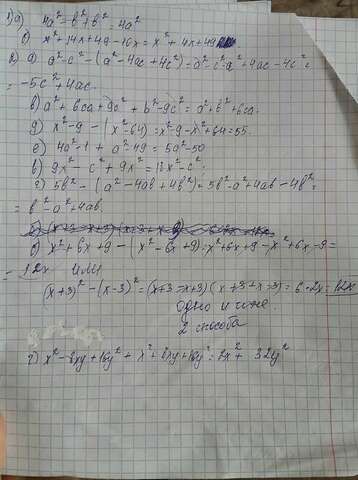 1) а) 4a² - b² + b² = 4a²
б) x² + 14x + 49 - 10x = x² + 4x + 49
2) а) a² - c² - (a² - 4ac + 4c²) = a² - c² - a² + 4ac - 4c² =
= -5c² + 4ac.
б) a² + 6ca + 9c² + b² - 9c² = a² + b² + 6ca.
д) x² - 9 - (x² - 64) = x² - 9 - x² + 64 = 55.
е) 4a² - 1 + a² - 49 = 5a² - 50
в) 9x² - c² + 9x² = 18x² - c².
г) 5b² - (a² - 4ab + 4b²) = 5b² - a² + 4ab - 4b² =
= b² - a² + 4ab
в) x² + 6x + 9 - (x² - 6x + 9) = x² + 6x + 9 - x² + 6x - 9 =
= 12x или
(x+3)² - (x-3)² = (x+3-x+3)(x+3+x-3) = 6·2x = 12x
одно и тоже.
2 способа
г) x² - 8xy + 16y² + x² + 8xy + 16y² = 2x² + 32y²